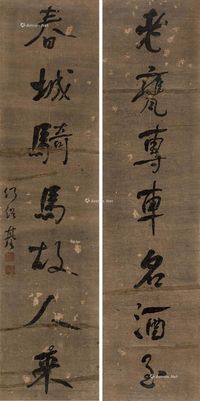 老甕專車名酒至
春城騎馬故人來
何紹基